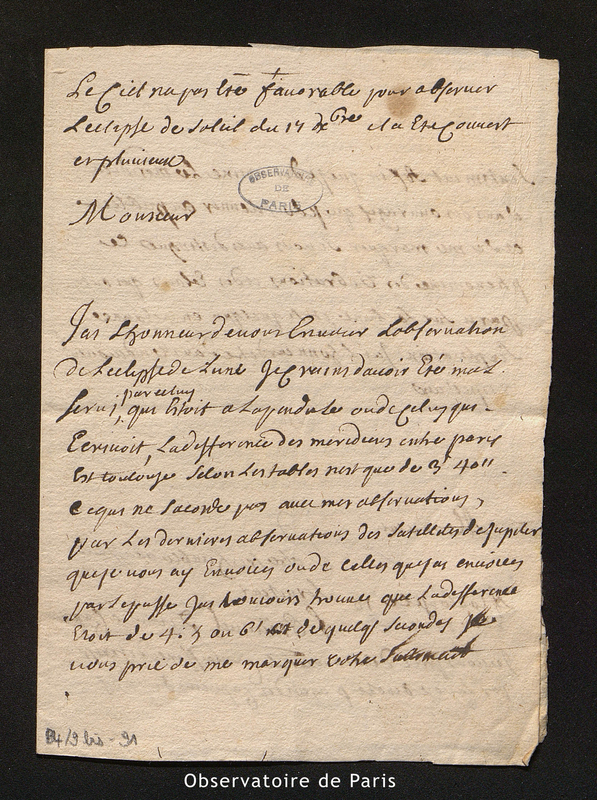 Le Ciel na pas Eté favorable pour observer
Leclipse de Soleil du 17 dbre il a Eté Couvert
et pluvieux
OBSERVATOIRE
DE
PARIS
Monsieur
Jai Lhonneur de vous Envoier Lobservation
de Leclipse de Lune Je Crains davoir Eté mal
par celuy
servi, qui Etoit a La pendule ou de Celuy qui
Ecrivoit, La difference des meridiens entre paris
Est toulouse selon Les tables nest que de 3' 40"
Ce qui ne sacorde pas avec mes observations,
par Les dernieres observations des Satellites de Jupiter
que je vous ay Envoiées ou de celles que jai envoiées
par Le passé Jai toujours trouvé que La difference
Etoit de 4. 5 ou 6' et de quelqs secondes Je
vous prie de me marquer votre
B4/9 bis - 91
Observatoire de Paris